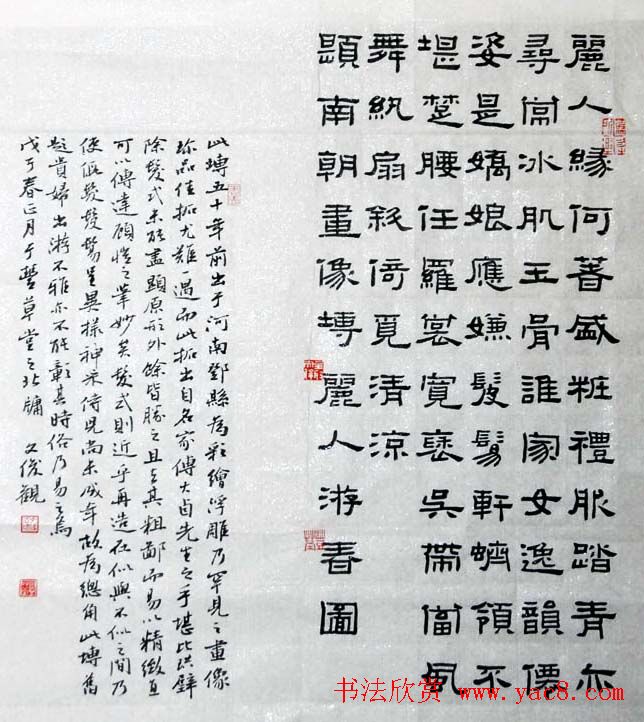 麗人緣何著盛粧禮服踏青亦
尋常冰肌玉骨誰家女逸韻僊
姿是嬌娘應嫌髮髾軒蠐領不
堪楚腰任羅裳寬裹吳帶當風
舞紈扇斜倚覓清涼
題南朝畫像塼麗人游春圖
此塼五十年前出于河南鄧縣為彩繪浮雕乃罕見之畫像
珍品佳拓尤難一遇而此拓出自名家傅大卣先生之手堪比珙璧
除髮式未能盡顯原形外餘皆勝之且去其粗鄙而易以精緻直
可以傳達顧愷之筆妙矣髮式則近乎再造在似與不似之間乃
使髮髾呈異樣神采侍兒尚未成年故為總角此塼舊
題貴婦出游不雅亦不能彰其時俗乃易之焉
戊子春正月于豐草堂之北牖 文俊觀
书法欣赏 www.yac8.com